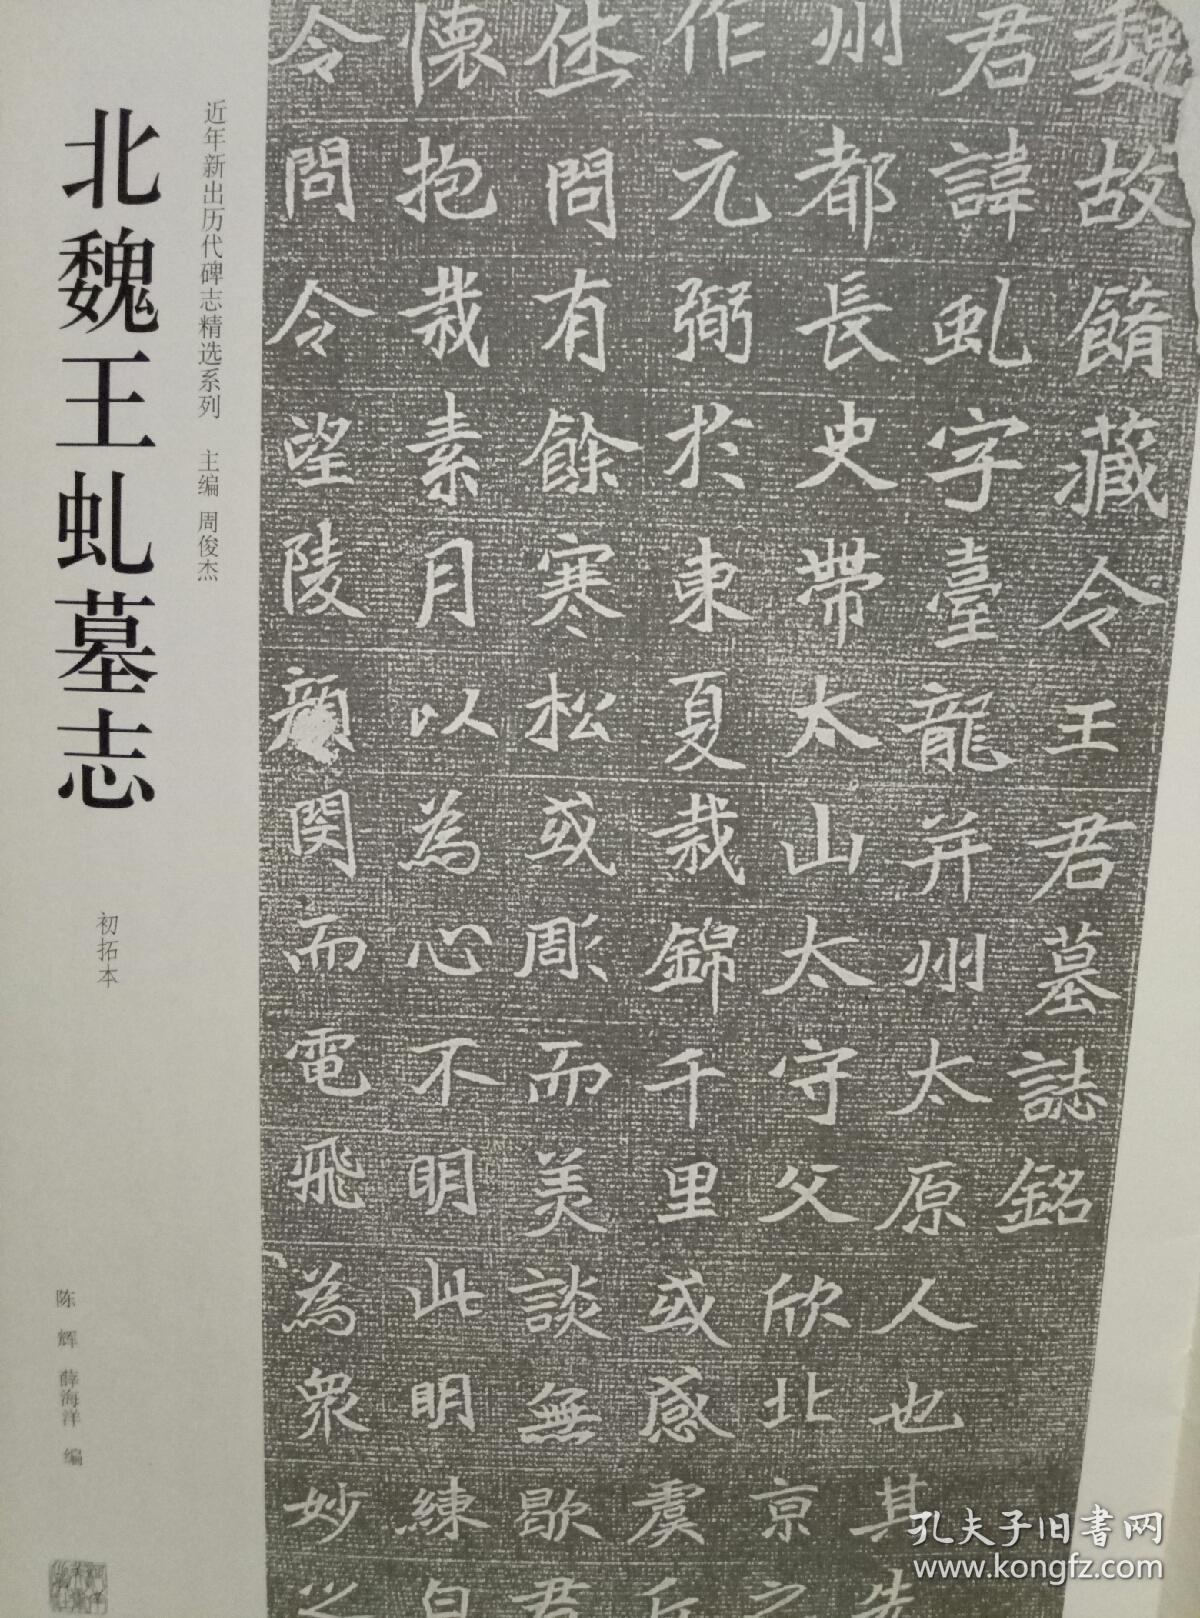 魏故餚藏令王君墓誌銘
君諱虬字臺龍并州太原人也其先
州都長史帶太山太守父欣北京之
作元弼於東夏裁錦千里或感虞丘
休問有餘寒松或彫而美談無歇君
懷抱裁素月以為心不明此明練白
令問令望陵顏閔而電飛為衆妙之
近年新出历代碑志精选系列 主编 周俊杰
北魏王虬墓志
初拓本
陈辉 薛海洋 编
孔夫子旧书网
www.kongfz.com